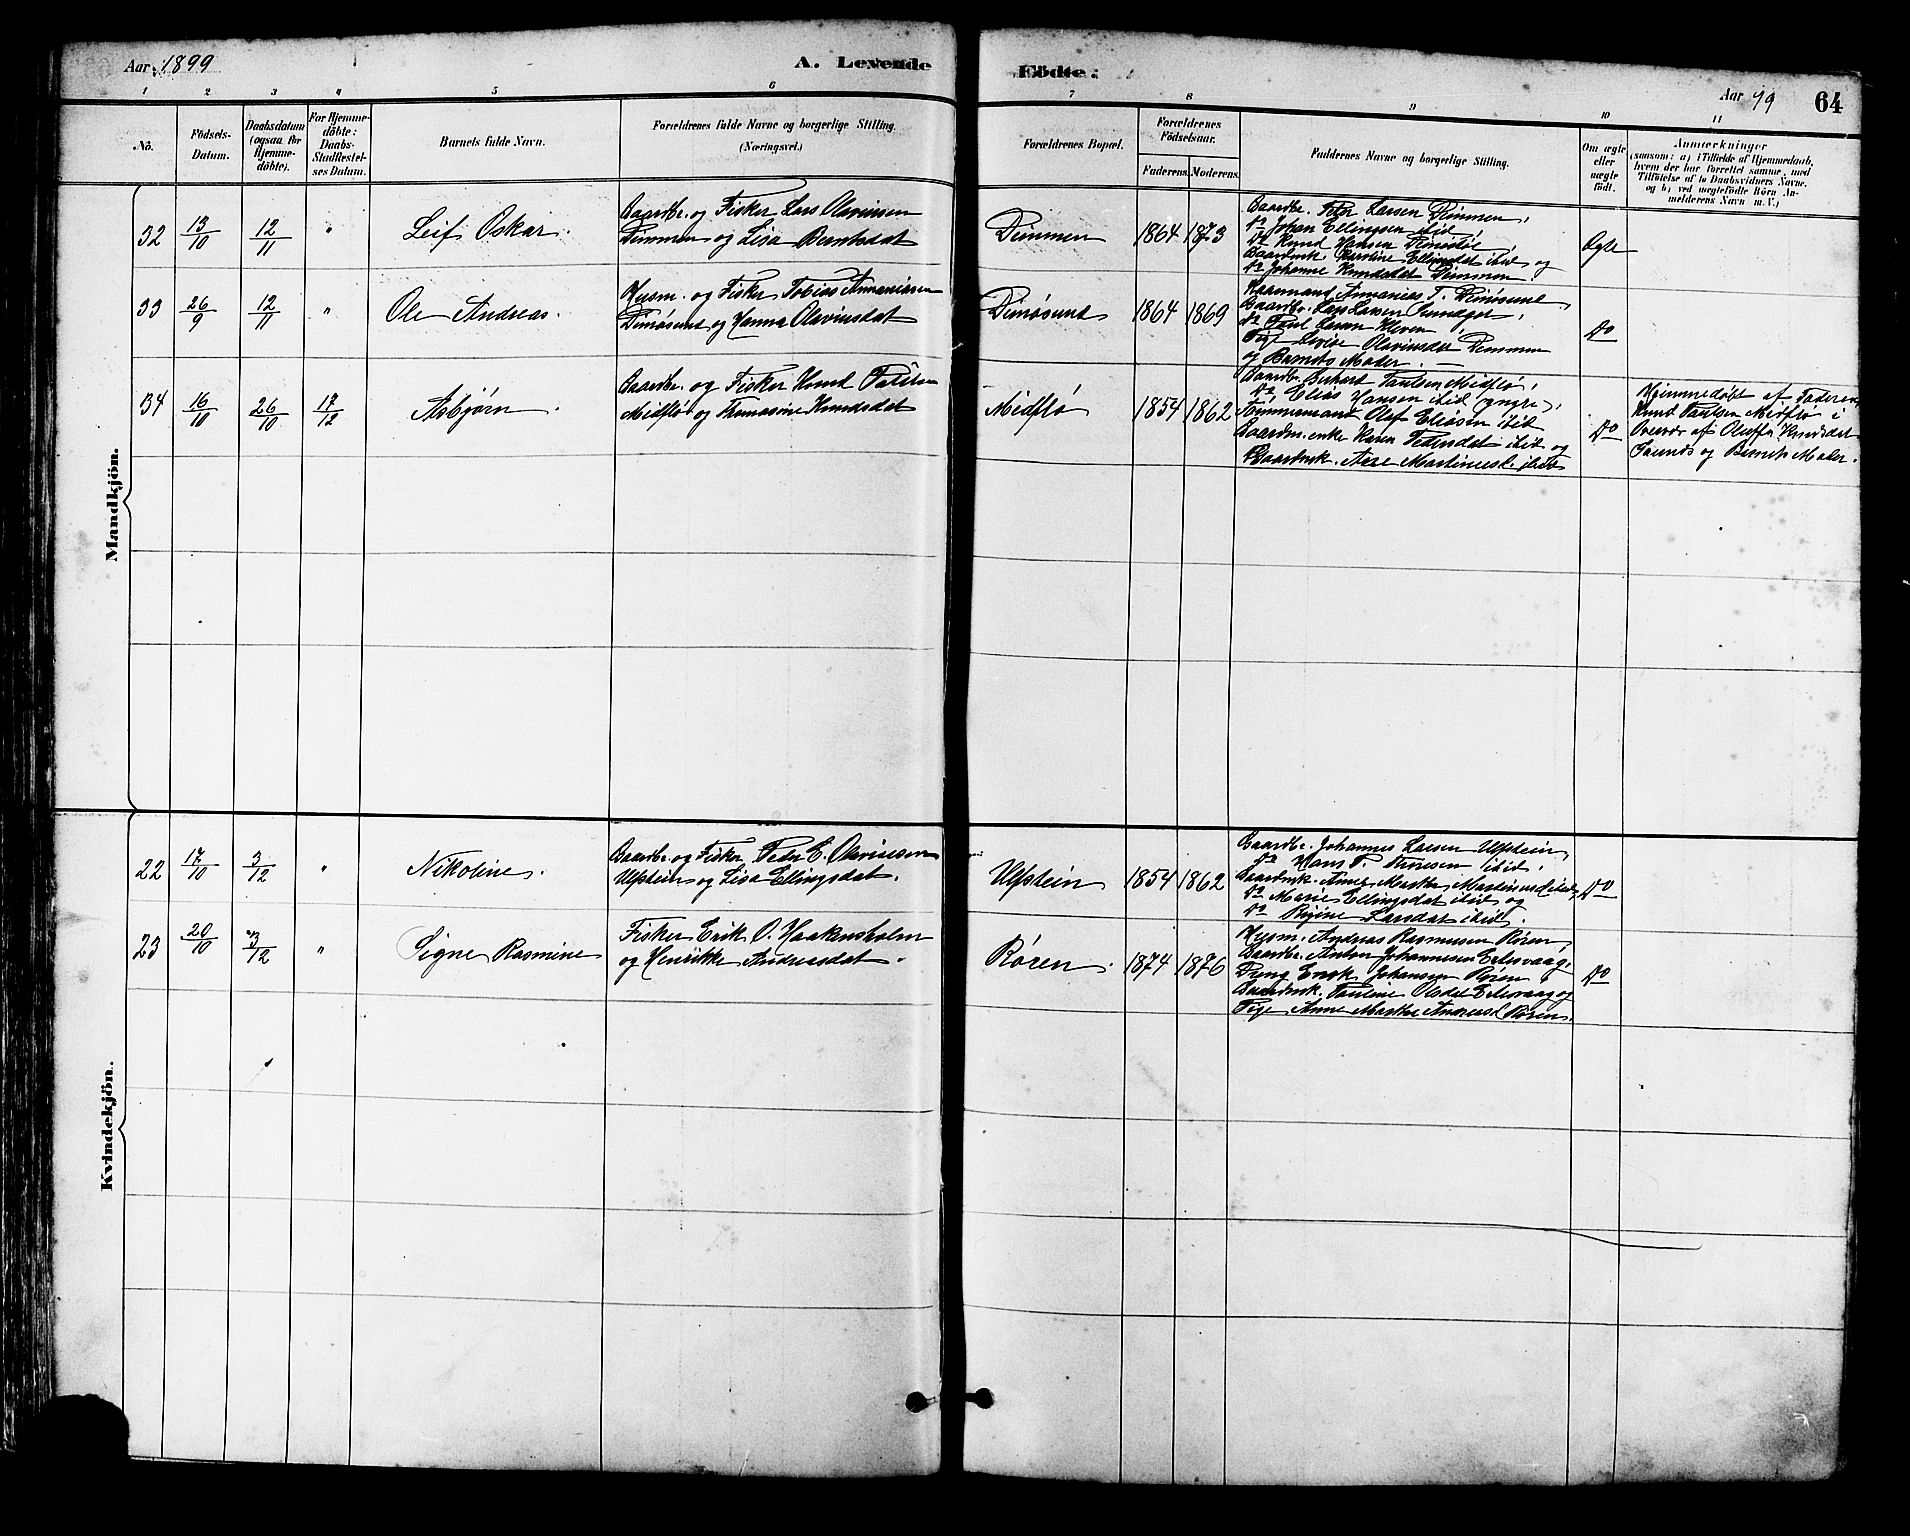 Aar 1899
A. Levende
Födte.
Aar 99
64
1 2 3 4 5 6 7 8 9 10 11
No.
Födsels-Datum.
Daabsdatum (ogsaa for Hjemmedöbte).
For Hjemmedöbte: Daabs-Stadfæstelses Datum.
Barnets fulde Navn.
Forældrenes fulde Navne og borgerlige Stilling. (Næringsvei.)
Forældrenes Bopæl.
Forældrenes Födselsaar.
Faderens. Moderens.
Faddernes Navne og borgerlige Stilling.
Om ægte eller uægte født.
Anmærkninger
(saasom: a) i Tilfælde af Hjemmedaab, hvem der har forrettet samme, med Tilføielse af to Daabsvidners Navne, og b) ved uægtefødte Börn Anmelderens Navn m. V.)
Mandkjön.
32 13/10 12/11 " Leif Oskar.
Gaardbr. og Fisker Lars Olavinsen
Dimmen og Lisa Berntsdat
Dimmen 1864 1873
Gaardbr. Peter Larsen Dimmen,
Do Johan Ellingsen ibid,
Do Knud Hansen
Gaardmk. Karoline Ellingsdat ibid og
Do Johanne Knudsdat Dimmen.
Ægte
33 26/9 12/11 " Ole Andreas.
Husm. og Fisker Tobias Annaniasen
Dimøsund og Hanna Olavinsdat
Dimøsund 1864 1869
Kaarmand Annanias T. Dimøsund,
Gaardbr. Lars Larsen
Do Paul Larsen Kleven,
Pige Lovise Olavinsdat Dimmen
og Barnets Moder.
Do
34 16/10 26/10 17/12 Asbjørn.
Gaardbr. og Fisker Knud Paulsen
Midflø og Thomasine Knudsdat
Midflø 1854 1862
Gaardbr. Paulsen Midflø,
Do Elias Hansen ibid (yngre),
Tømmermand Olaf Eliasen ibid
Gaardm.enke Karen Pedersdat ibid og
Gaardmk. Martinusd. ibid
Do
Hjemmedøbt af Faderen
Knud Paulsen Midflø i
Overvær af Knudsdat
og Barnets Moder.
Kvindekjön.
22 17/10 3/12 " Nikoline.
Gaardbr og Fisker Peder E. Olavinsen
Ulfstein og Lisa Ellingsdat.
Ulfstein 1854 1862
Gaardbr. Johannes Larsen Ulfstein,
Do Hans P. ibid,
Gaardmk. Anne Marthe Martinusd ibid,
Do Marie Ellingsdat ibid og
Do Regine Larsdat ibid.
Do
23 20/10 3/12 " Signe Rasmine
Fisker Erik O. Haakonsholm
og Henrikke Andreasdat.
Røren. 1874 1876
Husm. Andreas Rasmusen Røren,
Gaardbr. Anton Johannesen Eiksvaag,
Dreng Enok Johansen Røren,
Gaardmk. Pauline Olsdat Eiksvaag og
Pige Anne Marthe Andreasd Røren.
Do